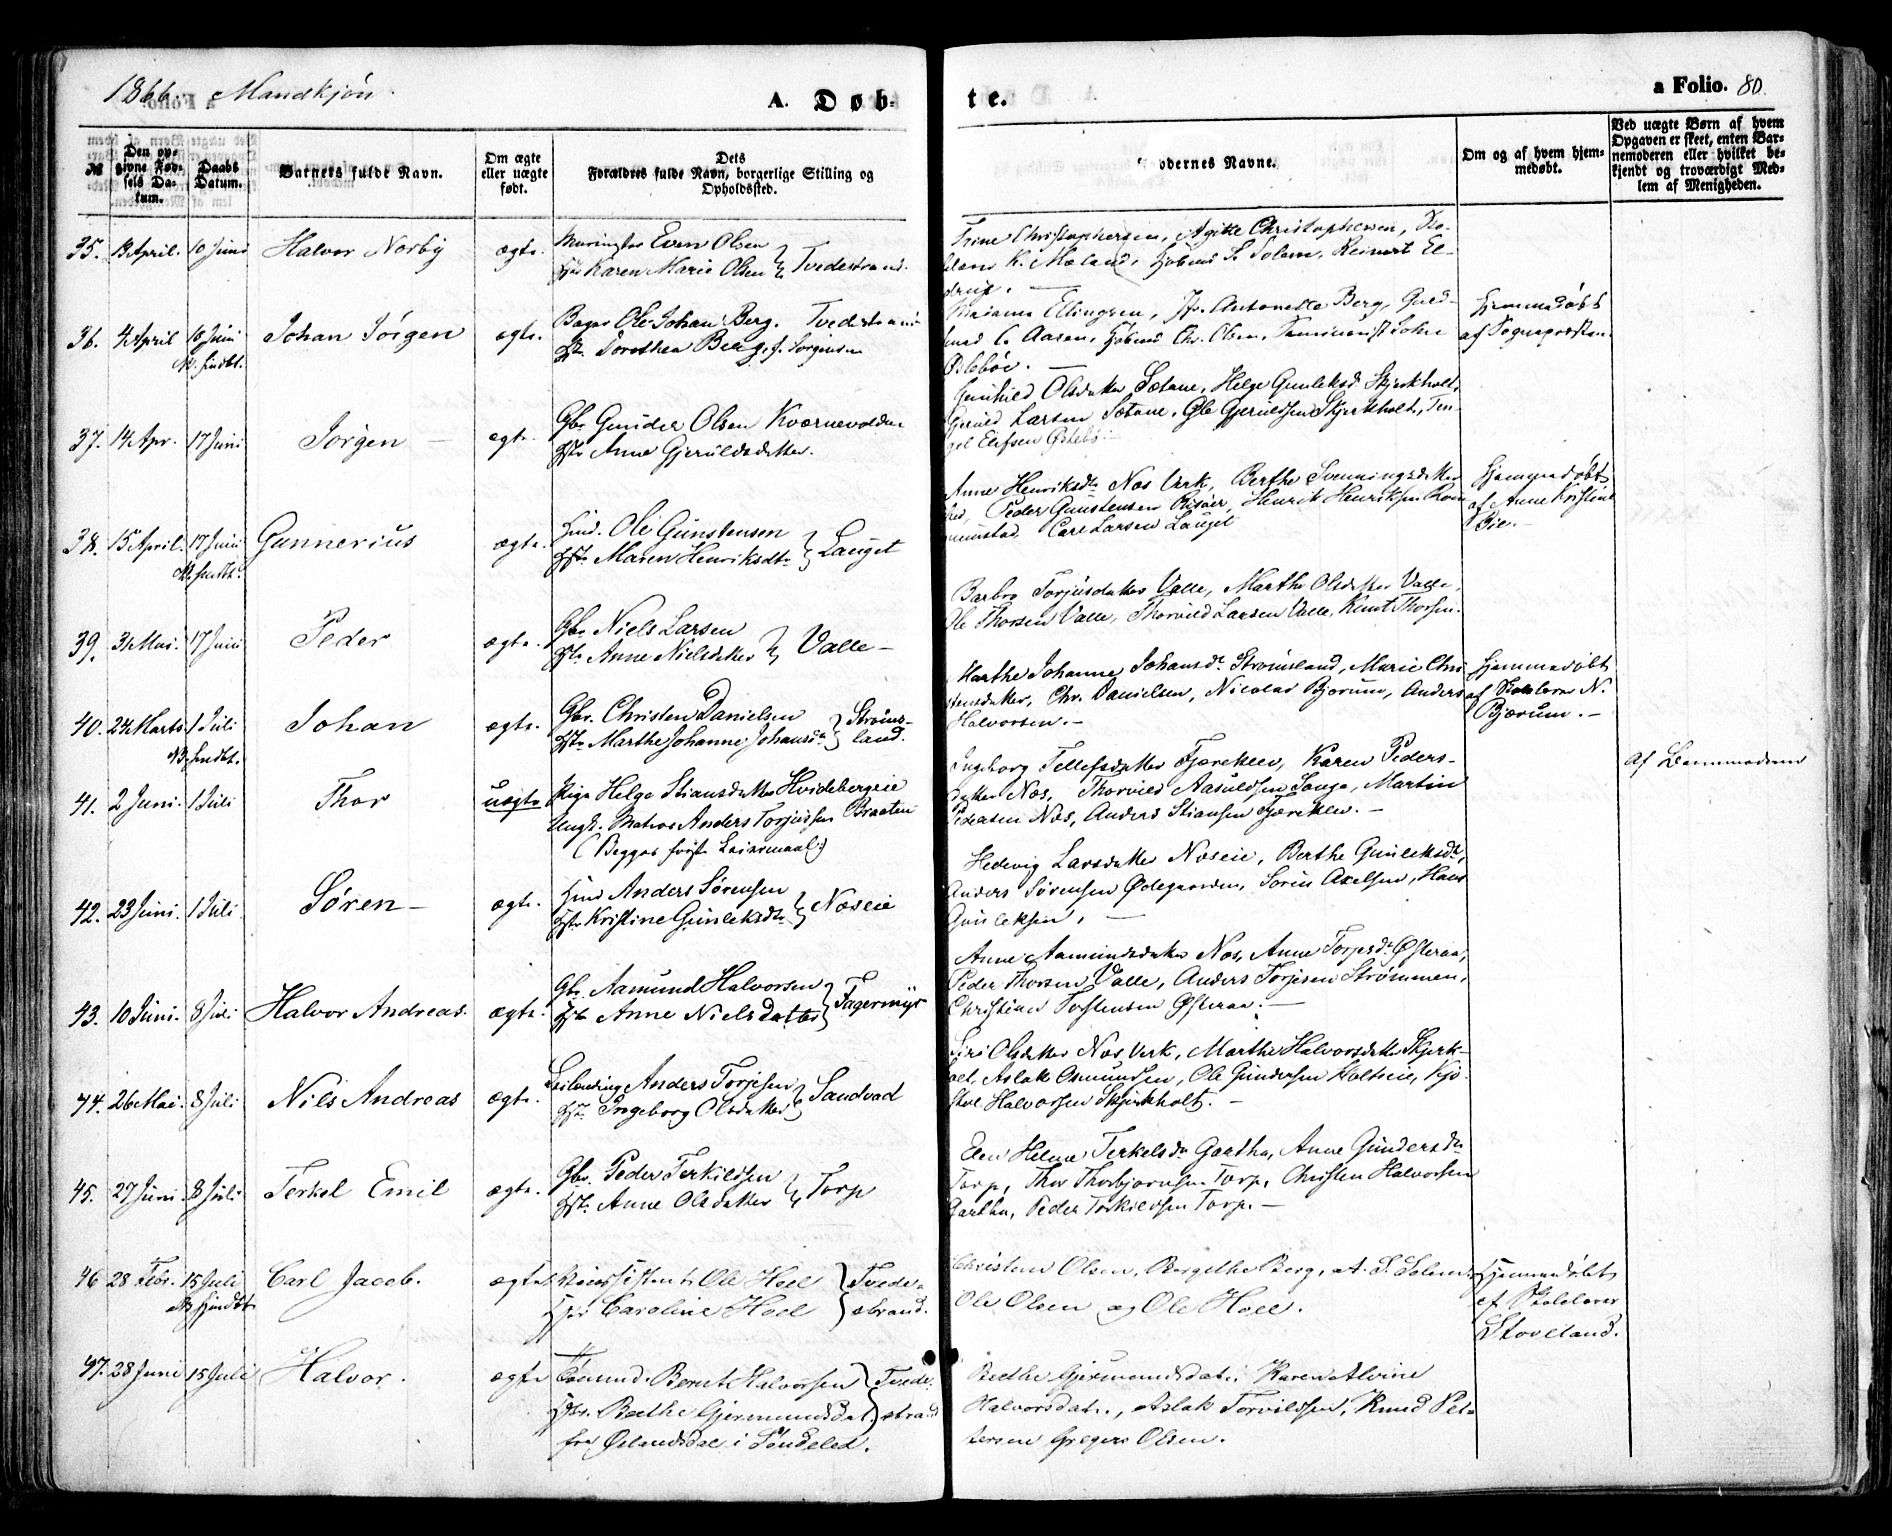 1866. Mandkjøn.
A. Døb-
te.
a Folio. 80.
№
Den op-
givne Fød-
sels Da-
tum.
Daabs
Datum.
Barnets fulde Navn.
Om ægte
eller uægte
født.
Dets
Forældres fulde Navn, borgerlige Stilling og
Opholdssted.
odernes Navne.
Om og af hvem hjem-
medøbt.
Ved uægte Børn af hvem
Opgaven er skeet, enten Bar-
nemoderen eller hvilket be-
kjendt og troværdigt Med-
lem af Menigheden.
35. 13 April. 10 Juni Halvor Norby ægte. Even Olsen
Karen Marie Olsen } Tvedestrand.
Trine Christophersen, Agitte Christophersen,
K. Mæland, S. Solem, Reinert El-
drup.
36. 4 April 10 Juni Johan Jørgen ægte. Bager Ole Johan Berg. Tvedestrand
Hjmdbt. Dorothea Berg, f. Jørgensen
Mariane Ellingsen, Jfr. Antonette Berg, Gud-
mund C. Aasen, Chr. Olsen, John
Østebøe.
Hjemmedøbt
af Sognepræsten.
37. 14 Apr. 17 Juni Jørgen — ægte. Gbr. Gunder Olsen Kværnevolden
Hst. Anne Gjeruldsdatter.
Gunhild Olsdatter Sætane, Helge Gunleksd. Skjerkholt,
Gjeruld Larsen Sætane, Ole Gjeruldsen Skjerkholt, Ten-
gel Elefsen Østebø.
38. 15 April. 17 Juni Gunnerius ægte. Hmd. Ole Gunstensen
Hst. Maren Henriksdtr } Lauget
Anne Henriksdtr Næs Verk, Berthe Svenningsdatter
Peder Gunstensen Risøer, Henrik Henriksen
Carl Larsen Lauget
Hjemmedøbt
af Anne Kristine
Bie.
39. 31 Mai. 17 Juni Peder ægte. Gbr. Niels Larsen
Hst. Anne Nielsdatter } Valle —
Barbro Torjusdatter Valle, Marthe Olsdatter Valle,
Ole Thorsen Valle, Thorvild Larsen Valle, Knut Thorsen.
40. 24 Marts. 1 Juli Johan ægte. Gbr. Christen Danielsen
Hjmdbt. Hst. Marthe Johanne Johansd. } Strøms-
land.
Marthe Johanne Johansd. Strømsland, Marie Chri-
stensdatter, Chr. Danielsen, Nicolai Bjorum, Anders
Halvorsen.
Hjemmedøbt
af Skolelærer N.
Bjørum.
41. 2 Juni. 1 Juli Thor uægte Pige Helge Stiansdatter Hvidebergeie
Ungk. Matros Anders Torjussen Braaten
(Begges første Leiermaal)
Ingeborg Tellefsdatter Fjæreklev, Karen Peders-
datter Næs, Thorvild Aasuldsen Songe, Martin
Pedersen Næs, Anders Stiansen Fjæreklev.
Af Barnemoderen
42. 23 Juni. 1 Juli Søren — ægte. Hmd Anders Sørensen
Hst. Kristine Gunleksdtr } Næseie
Hedevig Larsdatter Næseie, Berthe Gunleksdtr,
Anders Sørensen Ødegaarden, Søren Axelsen, Hans
Gunleksen. —
43. 10 Juni. 8 Juli Halvor Andreas. ægte. Gbr. Aamund Halvorsen
Hst. Anne Nielsdatter } Fagermyr
Anne Aamundsdatter Næs, Anne Torjesd. Østeraa,
Peder Thorsen Valle, Anders Torjesen Strømmen,
Christian Torstensen Østeraa.
44. 26 Mai. 8 Juli Nils Andreas ægte. Leilending Anders Torjesen
Hst. Ingeborg Olsdatter } Sandvad
Siri Olsdatter Næs Verk, Marthe Halvorsdatter Skjerk-
holt, Aslak Osmundsen, Ole Gundersen Holtseie, Kjø-
stol Halvorsen Skjerkholt.
45. 27 Juni. 8 Juli Terkel Emil ægte. Gbr. Peder Terkildsen
Hst. Anne Olsdatter } Torp
Elen Helene Terkelsd. Gartha, Anne Gundersdtr
Torp, Thor Thorbjørnsen Torp, Christen Halvorsen
Gartha, Peder Terkildsen Torp. —
46 28 Febr. 15 Juli Carl Jacob. ægte Ole Hoel
Hjmdbt Caroline Hoel } Tvede-
strand.
Christine Olsen, Bergethe Berg, A. S. Solem,
Ole Olsen og Ole Hoel.
Hjemmedøbt
af Skolelærer
Stoveland.
47. 28 Juni 15 Juli Halvor. ægte Bernt Halvorsen
Berthe Gjermundsdat } Tvede-
strand
fra Øslandsdal i Søndeled.
Berthe Gjermundsdat., Karen Alvine
Halvorsdat., Aslak Torvildsen, Knud Pet-
tersen Gregers Olsen.